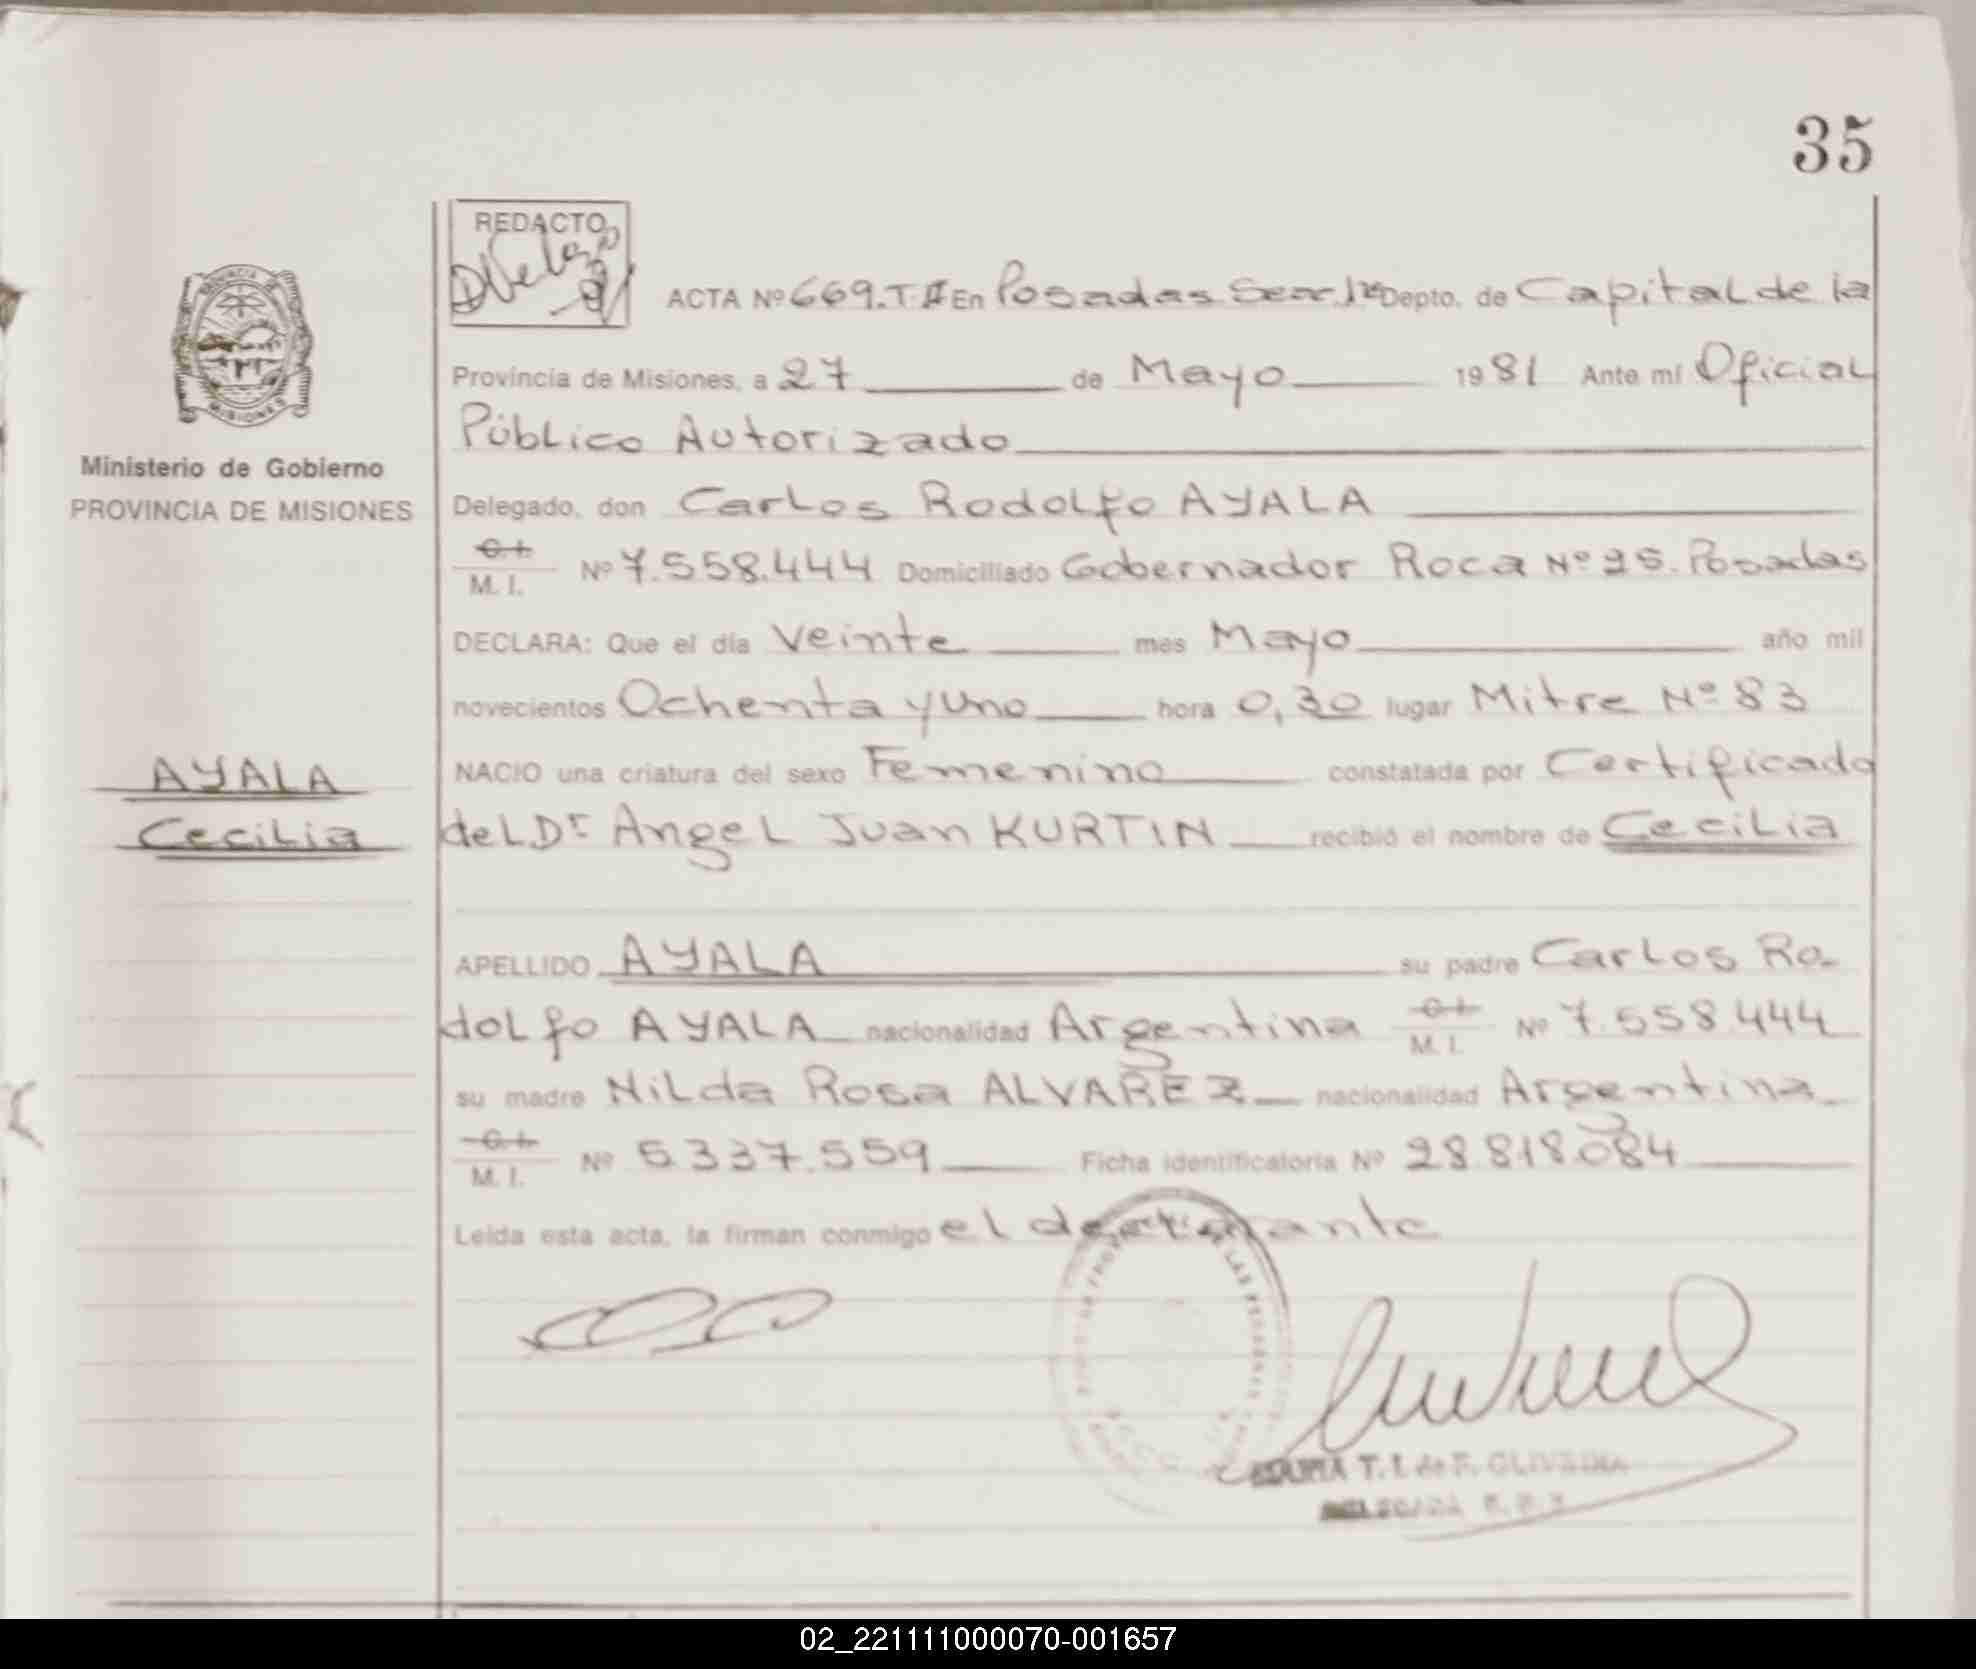 35
REDACTO
ACTA Nº 669. T. II En Posadas Secc. 1ª Depto. de Capital de la
Provincia de Misiones, a 27 de Mayo 1981 Ante mí Oficial
Público Autorizado
Ministerio de Gobierno
PROVINCIA DE MISIONES
Delegado, don Carlos Rodolfo AYALA
C.I. M. I. Nº 7.558.444 Domiciliado Gobernador Roca Nº 25. Posadas
DECLARA: Que el día Veinte mes Mayo año mil
novecientos Ochenta y Uno hora 0,30 lugar Mitre Nº 83
NACIO una criatura del sexo Femenino constatada por Certificado
AYALA
Cecilia
del Dr Angel Juan KURTIN recibió el nombre de Cecilia
APELLIDO AYALA su padre Carlos Ro-
dolfo AYALA nacionalidad Argentina C.I. M. I. Nº 7.558.444
su madre Nilda Rosa ALVAREZ nacionalidad Argentina
C.I. M. I. Nº 5.337.559 Ficha identificatoria Nº 28.818.084
Leída esta acta, la firman conmigo el declarante
T. I. de F. OLIVEIRA
02_221111000070-001657